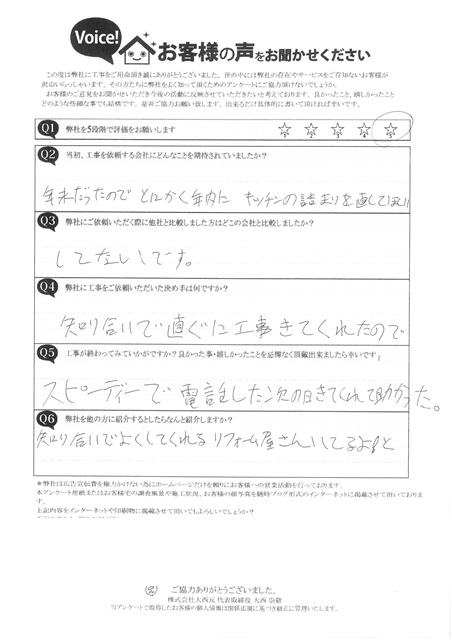 Voice!
お客様の声をお聞かせください
この度は弊社に工事をご用命頂き誠にありがとうございました。世の中には弊社の存在やサービスをご存知ないお客様が
沢山いらっしゃいます。その方たちに弊社をよく知って頂くためのアンケートにご協力頂けないでしょうか。
お客様のご意見をお聞かせいただき今後の活動に反映させていただきたいと考えております。良かったこと、嬉しかったこと
どのような些細な事でも結構です。是非ご協力お願い致します。出来るだけ具体的に書いて頂ければ幸いです。
Q1 弊社を5段階で評価をお願いします
1 2 3 4 5
Q2 当初、工事を依頼する会社にどんなことを期待されていましたか？
年末だったので とにかく年内に キッチンの詰まりを直してほしい
Q3 弊社にご依頼いただく際に他社と比較しました方はどこの会社と比較しましたか？
してないです。
Q4 弊社に工事をご依頼いただいた決め手は何ですか？
知り合いで直ぐに工事きてくれたので
Q5 工事が終わってみていかがですか？良かった事・嬉しかったことを忌憚なく頂戴出来ましたら幸いです！
スピーディーで 電話した次の日きてくれて助かった。
Q6 弊社を他の方に紹介するとしたらなんと紹介しますか？
知り合いでよくしてくれる リフォーム屋さんいてるよ！と
＊弊社は広告宣伝費を極力かけない為にホームページだけを頼りにお客様への営業活動を行っております。
本アンケート用紙またはお客様宅の調査風景や施工状況、お客様の顔写真を随時ブログ形式のインターネットに掲載させて頂いております。
上記内容をインターネットや印刷物に掲載させて頂いてもよろしいでしょうか？
ご協力ありがとうございました。
株式会社大西元 代表取締役 大西 崇敬
当アンケートで取得したお客様の個人情報は関係法規に基づき厳正に管理いたします。